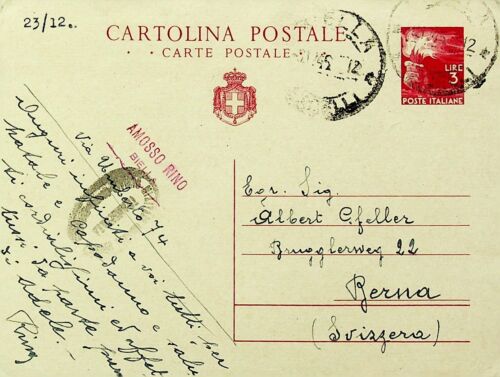 23/12.
CARTOLINA POSTALE
CARTE POSTALE
BIELLA
LIRE
3
POSTE ITALIANE
AMOSSO RINO
BIELLA
Via Umberto 74
Auguri infiniti a voi tutti per
Natale e Capodanno e salu
ti cordialissimi ed affet
tuosi da parte
di Adele -
Rino
Egr. Sig.
Albert Gfeller
Brugglerweg 22
Berna
(Svizzera)